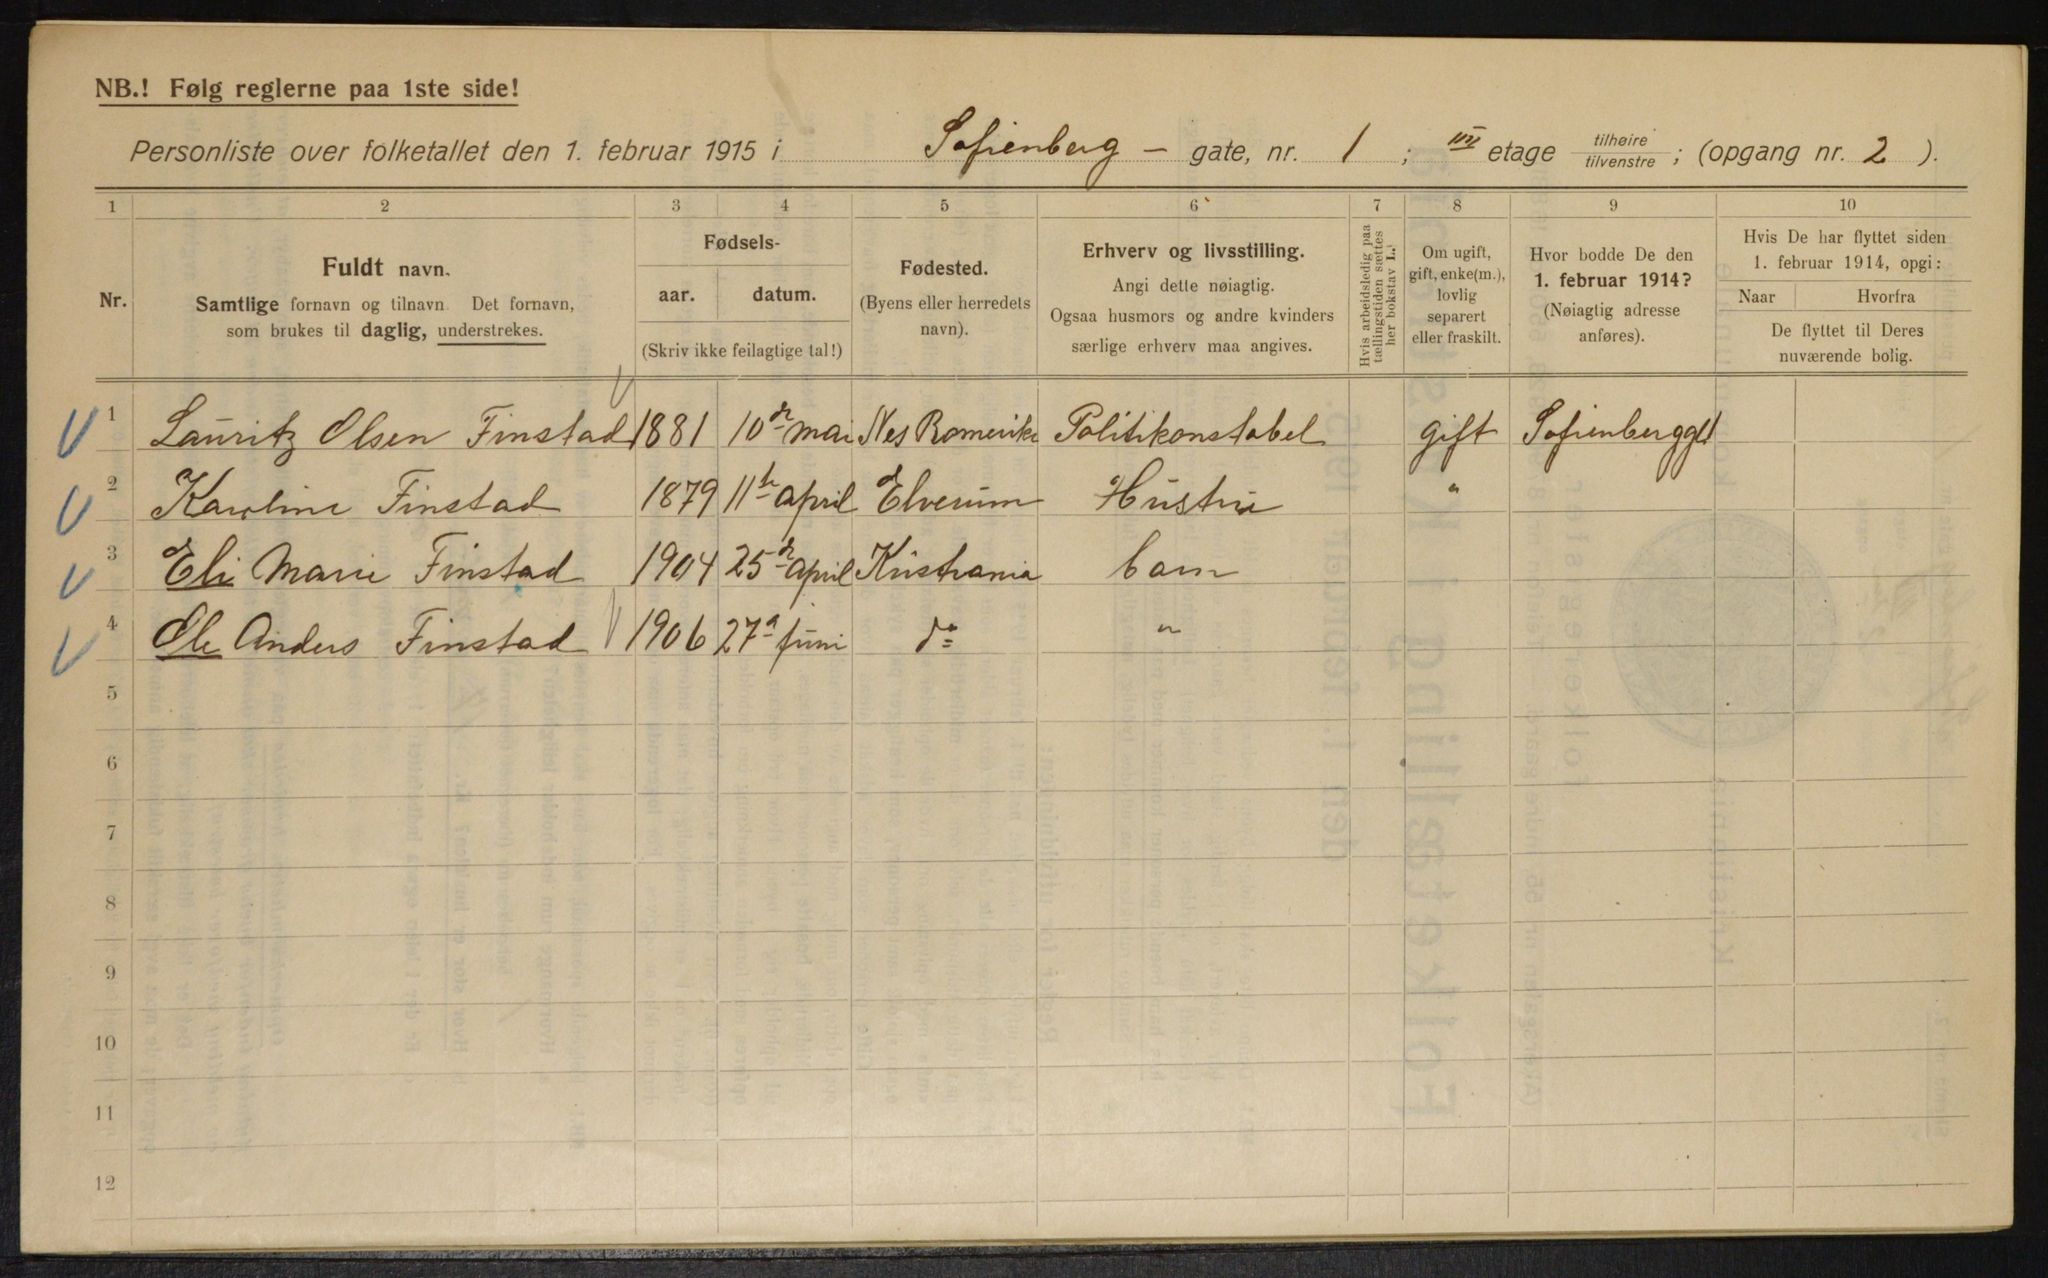 NB.! Følg reglerne paa 1ste side!
Personliste over folketallet den 1. februar 1915 i Sofienberg - gate, nr. 1 ; III etage tilhøire/tilvenstre ; (opgang nr. 2 ).
1 2 3 4 5 6 7 8 9 10
Nr.
Fuldt navn.
Samtlige fornavn og tilnavn. Det fornavn,
som brukes til daglig, understrekes.
Fødsels-
aar. datum.
(Skriv ikke feilagtige tal!)
Fødested.
(Byens eller herredets
navn).
Erhverv og livsstilling.
Angi dette nøiagtig.
Ogsaa husmors og andre kvinders
særlige erhverv maa angives.
Hvis arbeidsledig paa
tællingstiden sættes
her bokstav L.
Om ugift,
gift, enke(m.),
lovlig
separert
eller fraskilt.
Hvor bodde De den
1. februar 1914?
(Nøiagtig adresse
anføres).
Hvis De har flyttet siden
1. februar 1914, opgi:
Naar Hvorfra
De flyttet til Deres
nuværende bolig.
1 Lauritz Olsen Finstad 1881 10de mai Nes Romerike Politikonstabel gift Sofienberggt 1
2 Karoline Finstad 1879 11te april Elverum Hustru "
3 Eli Marie Finstad 1904 25de april Kristiania barn
4 Ole Anders Finstad 1906 27de juni do "
5
6
7
8
9
10
11
12